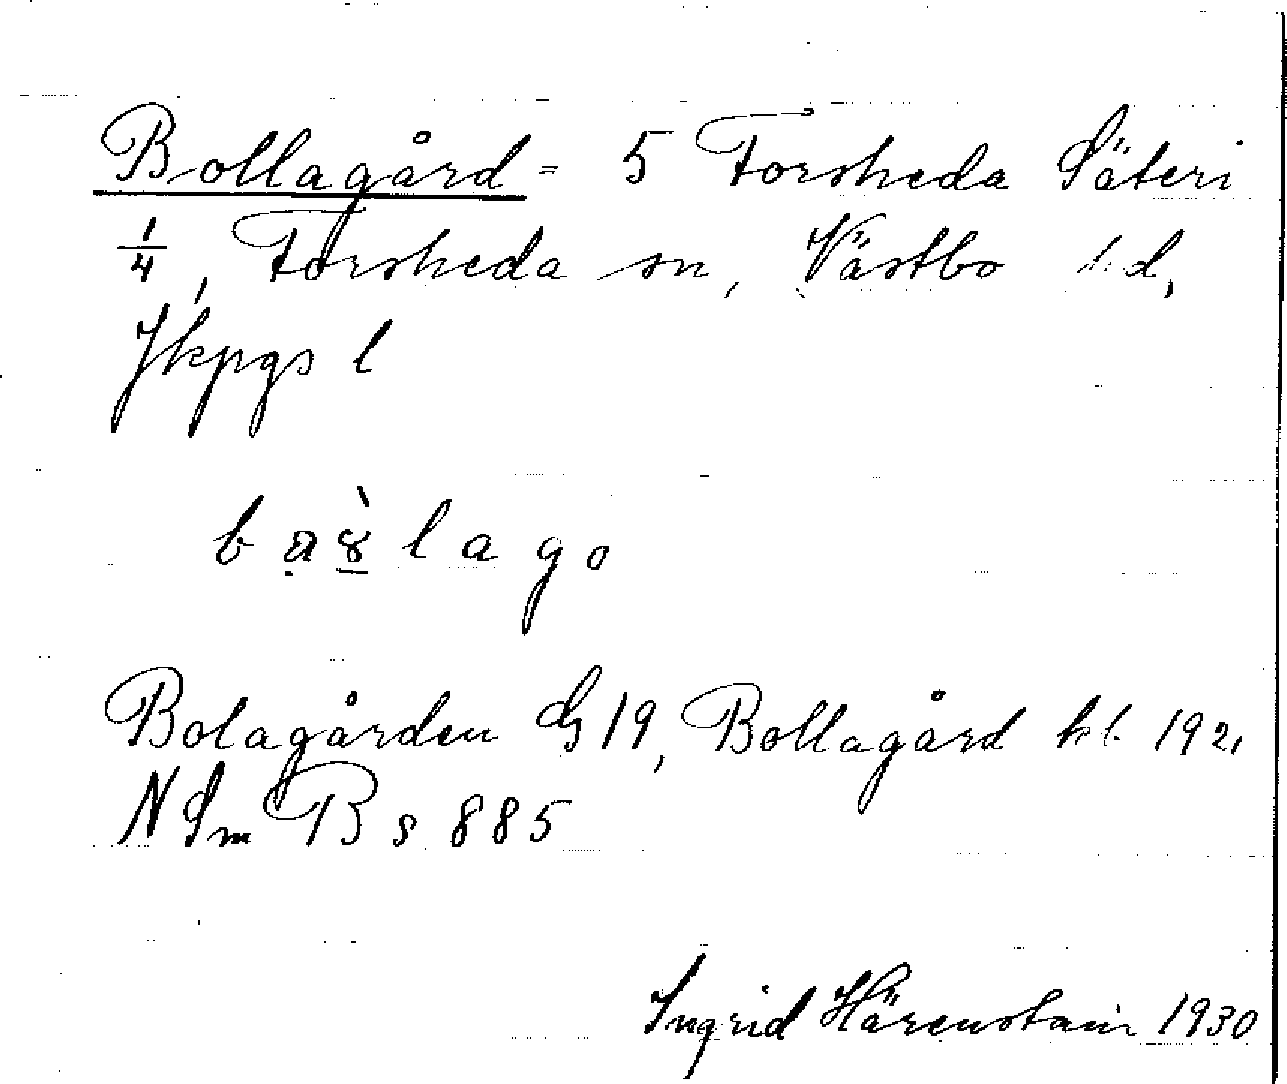 Bollagård = 5 Forsheda Säteri
1/4, Forsheda sn, Västbo hd,
Jkpgs l
lago
Bolagården G 19, Bollagård kl. 192,
N Sm B s 885
Ingrid Härenstam 1930